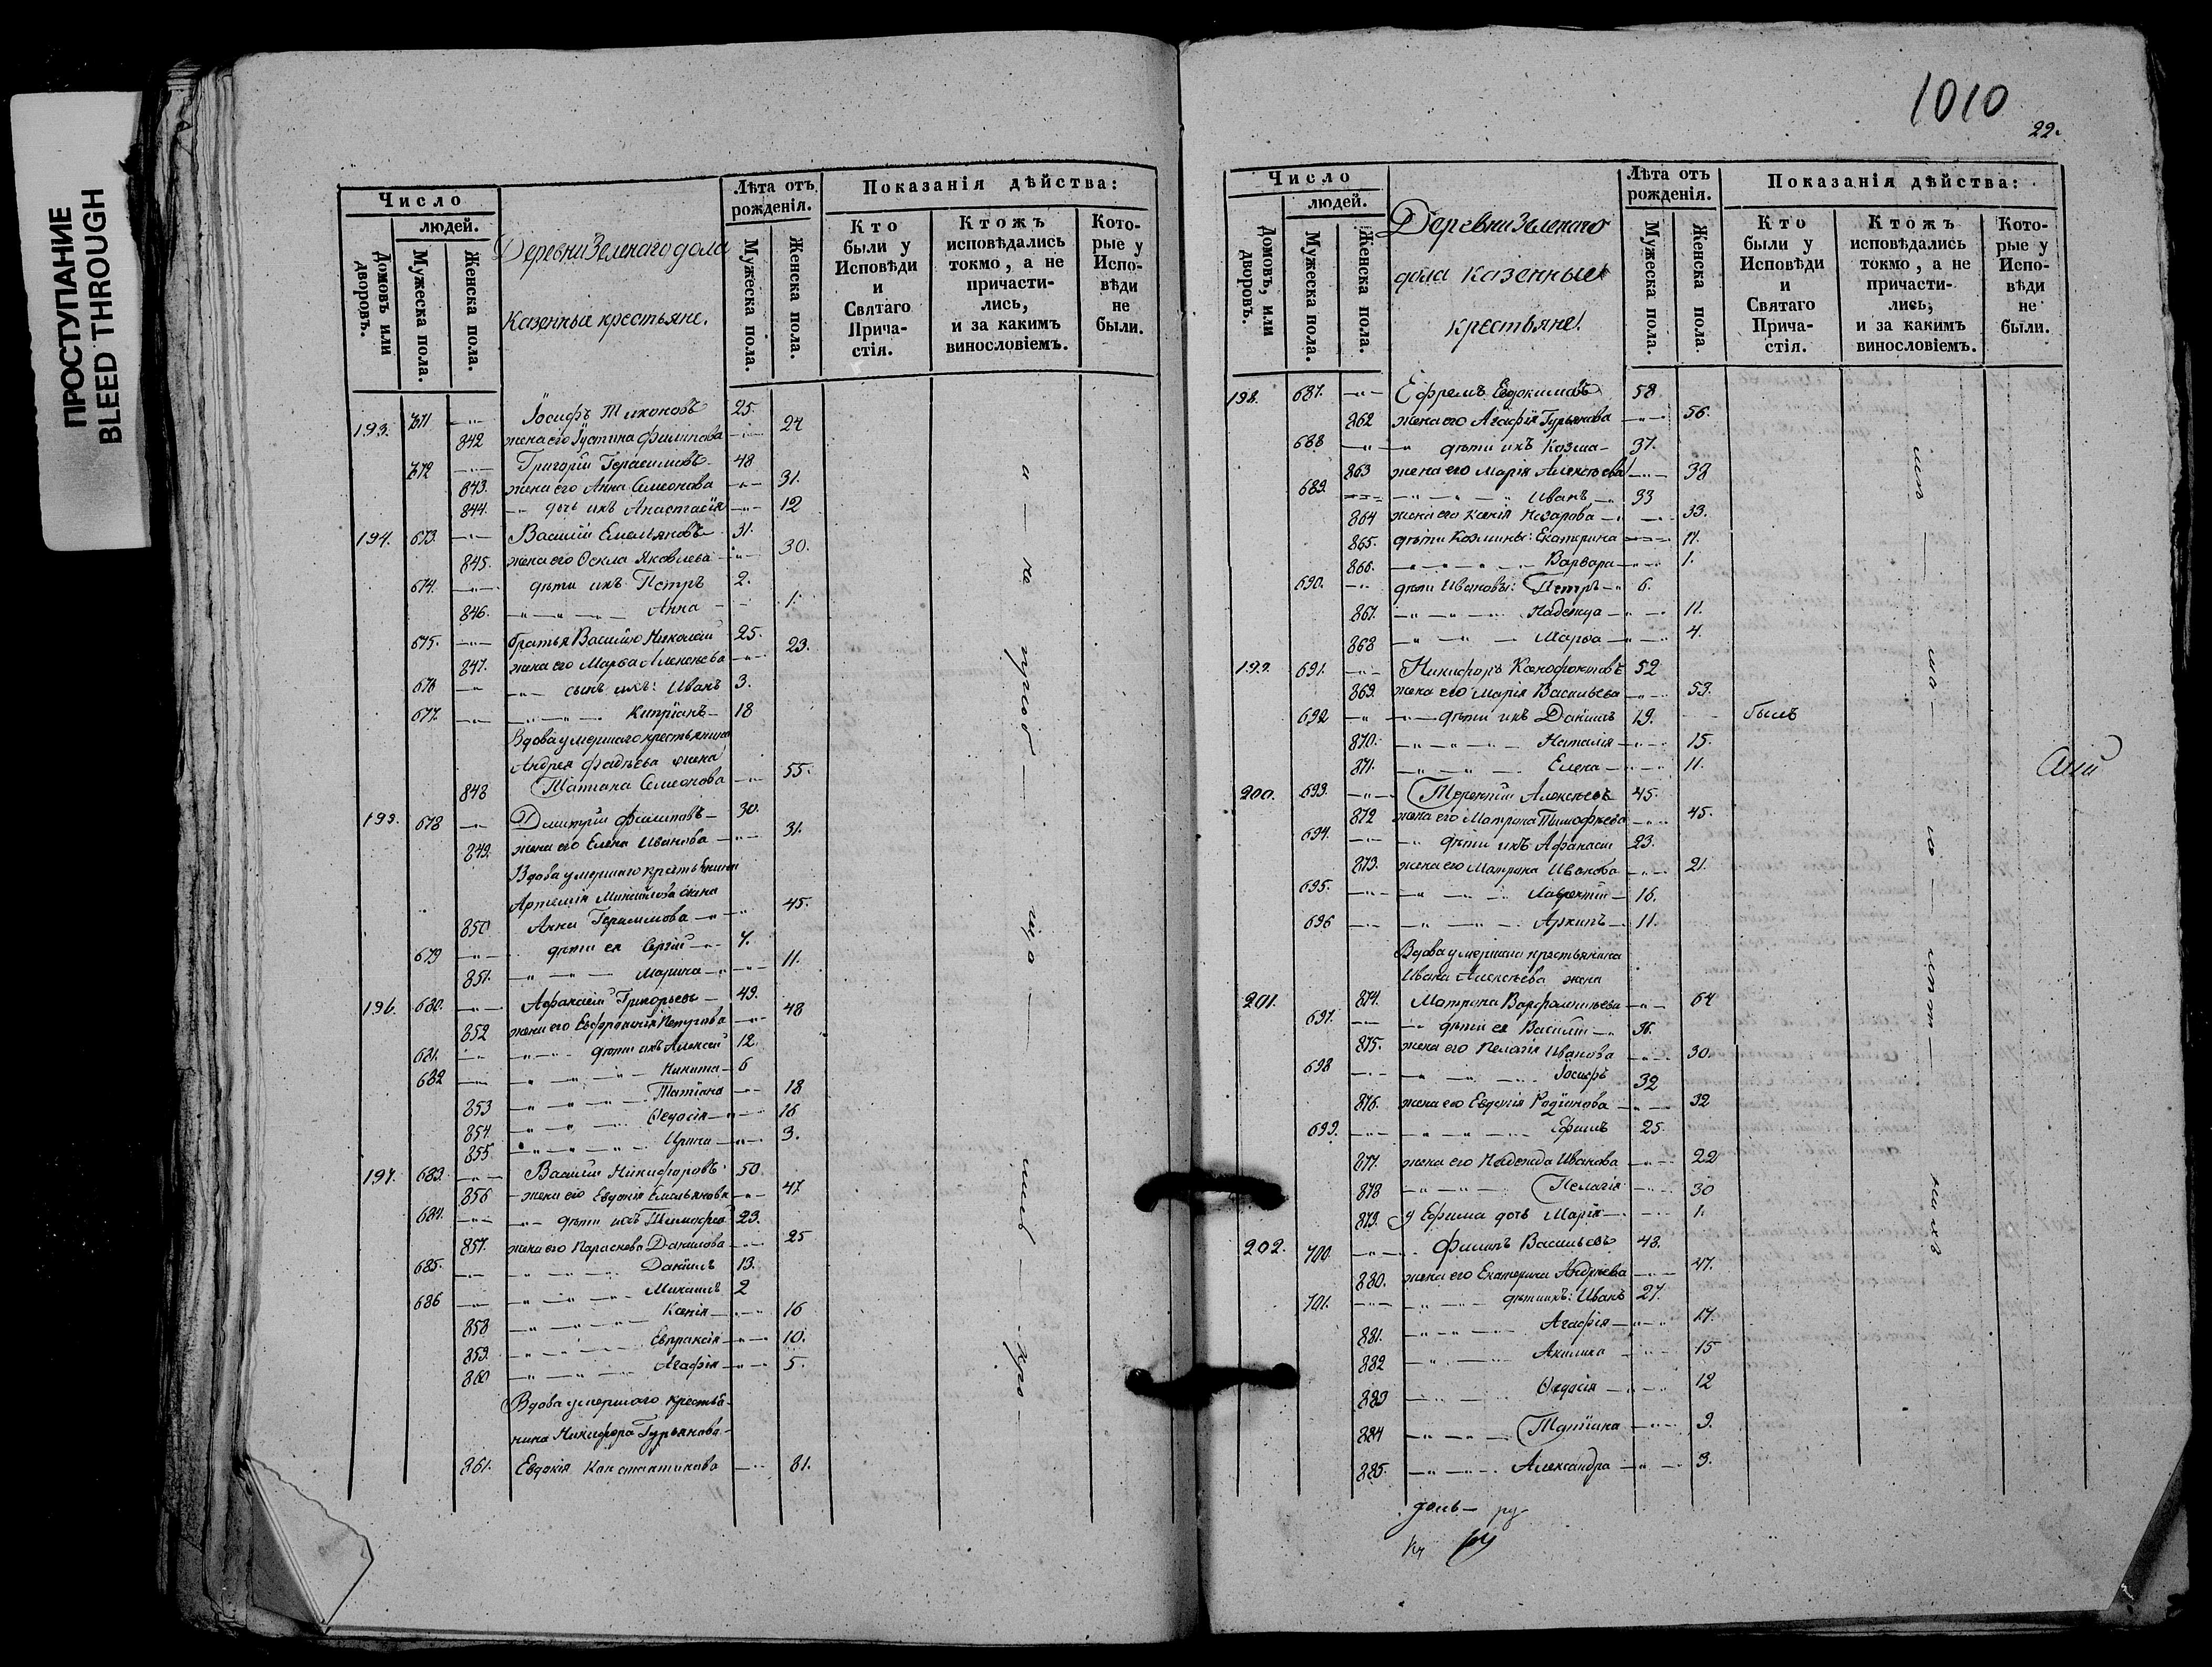 ПРОСТУПАНИЕ
BLEED THROUGH
Число
людей.
Домовъ или дворовъ.
Мужеска пола.
Женска пола.
Деревни Зеленаго дола
Казенные крестьяне.
Лѣта отъ рожденія.
Мужеска пола.
Женска пола.
Показанія дѣйства:
Кто были у Исповѣди и Святаго Прича-стія.
Ктожъ исповѣдались токмо, а не причасти-лись, и за какимъ винословіемъ.
Кото-рые у Испо-вѣди не были.
193. 671 Іосифъ Тихоновъ 25.
842 жена его Іустина Филипова 24
672 Григорій Герасимовъ 48
843. жена его Анна Семеонова 31.
844. дочь ихъ Анастасія 12
194. 673. Василій Емельяновъ 31.
845. жена его Ѳекла Яковлева 30.
674. дѣти ихъ Петръ 2.
846. Анна 1.
675. братья Василію Николай 25.
847. жена его Марѳа Алексѣева 23.
676 сынъ ихъ: Иванъ 3.
677. Кипріанъ 18
Вдова умершаго крестьянина
Андрея Фадѣева жена
848 Татіана Семеонова 55.
195. 678 Дмитрій Филиповъ 30.
849. жена его Елена Иванова 31.
Вдова умершаго крестьянина
Артемія Михайлова жена
850 Анна Герасимова 45.
679 дѣти ея Сергій 7.
851. Марина 11.
196. 680. Афанасій Григорьевъ 49.
852 жена его Евфросинія Петрова 48
681. дѣти ихъ Алексей 12.
682 Никита 6
853 Татіана 18
854. Ѳедосія 16
855. Ирина 3.
197. 683. Василій Никифоровъ 50.
856 жена его Евдокія Емельянова 47
684. дѣти ихъ Тимофей 23.
857. жена его Параскева Данилова 25
685. Даніилъ 13.
686 Михаилъ 2
858 Ксенія 16
859. Евпраксія 10.
860 Агафія 5.
Вдова умершаго крестья-
нина Никифора Гурьянова
861. Евдокія Константинова 81.
1010
22.
Число
людей.
Домовъ, или дворовъ.
Мужеска пола.
Женска пола.
Деревни Зеленаго
дола казенные
крестьяне.
Лѣта отъ рожденія.
Мужеска пола.
Женска пола
Показанія дѣйства:
Кто были у Исповѣди и Святаго Прича-стія.
Ктожъ исповѣдались токмо, а не причасти-лись, и за какимъ винословіемъ.
Кото-рые у Испо-вѣди не были.
198. 687. Ефремъ Евдокимовъ 58
862 жена его Агафія Гурьянова 56.
688 дѣти ихъ Козма 37.
863 жена его Марія Алексѣева 38
689. Иванъ 33
864 жена его Ксенія Назарова 33.
865. дѣти Козмины: Екатерина 11.
866. Варвара 1.
690. дѣти Ивановы: Петръ 6.
867. Надежда 11.
868 Марѳа 4.
199. 691. Никифоръ Ксенофонтовъ 52
869. жена его Марія Васильева 53.
692 дѣти ихъ Даніилъ 19. былъ
870. Наталія 15.
871. Елена 11.
200. 693. Терентій Алексѣевъ 45.
872 жена его Матрона Тимофѣева 45.
694. дѣти ихъ Афанасій 23.
873. жена его Матрона Иванова 21.
695. Лаврентій 16.
696 Архипъ 11.
Вдова умершаго крестьянина
Ивана Алексѣева жена
201. 874. Матрона Варфоломѣева 64
697. дѣти ея Василій 36.
875. жена его Пелагія Иванова 30.
698 Іосифъ 32
876. жена его Евдокія Родіонова 32
699. Ефимъ 25.
877. жена его Надежда Иванова 22
878 Пелагія 30
879. у Ефима дочь Марія 1.
202. 700. Филипъ Васильевъ 48.
880. жена его Екатерина Андреева 47.
701. дѣти ихъ: Иванъ 27.
881. Агафія 17.
882 Акилина 15
883 Ѳедосія 12
884 Татіана 9.
885. Александра 3.